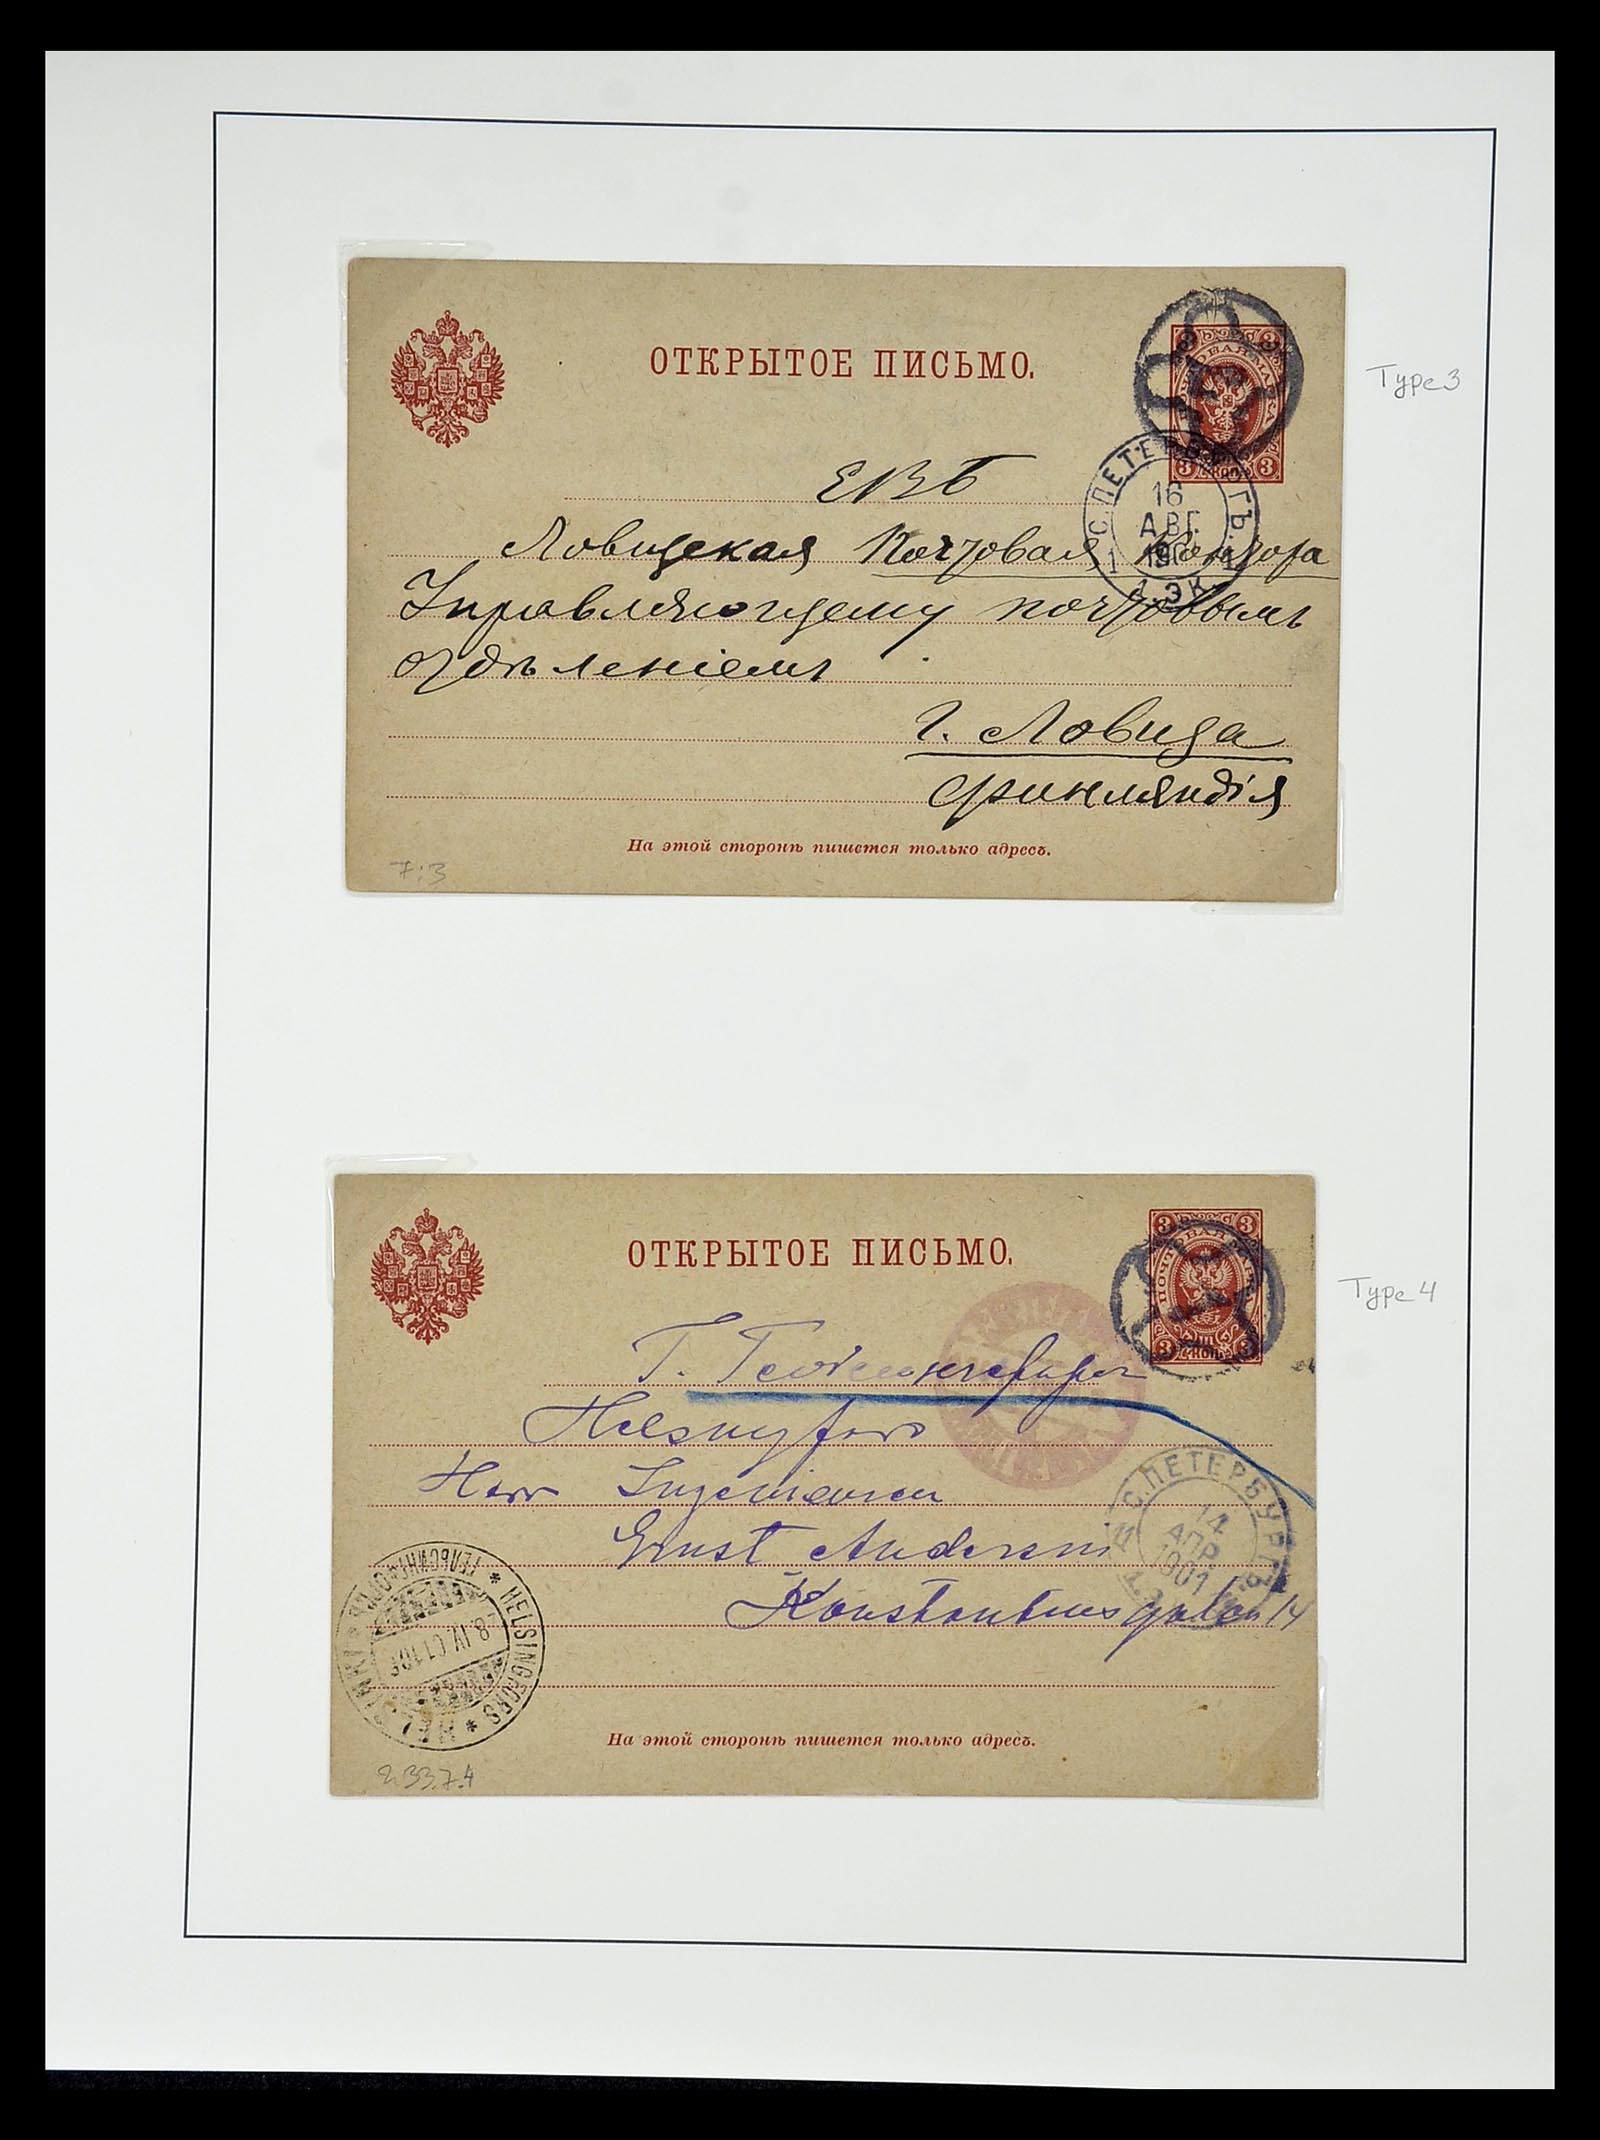 ОТКРЫТОЕ ПИСЬМО.
ПОЧТОВАЯ МАРКА
3 3
3 КОП. 3
Type 3
С.ПЕТЕРБУРГЪ.
16
АВГ.
1 190 1
1.ЭК.
ЕВБ
Ловизская Почтовая Контора
Управляющему почтовымъ
отдѣленіемъ
г. Ловиза
Финляндія
На этой сторонѣ пишется только адресъ.
7:3
ОТКРЫТОЕ ПИСЬМО.
ПОЧТОВАЯ МАРКА
3 3
3 КОП. 3
Type 4
Г.
Helsingfors
Herr Ingenieuren
Ernst Andersin
Konstantinsgatan 14
С.ПЕТЕРБУРГЪ
14
АПР.
1901
HELSINGFORS * HELSINKI * ГЕЛЬСИНГФОРСЪ *
28.IV.01.10
На этой сторонѣ пишется только адресъ.
2.33.7.4